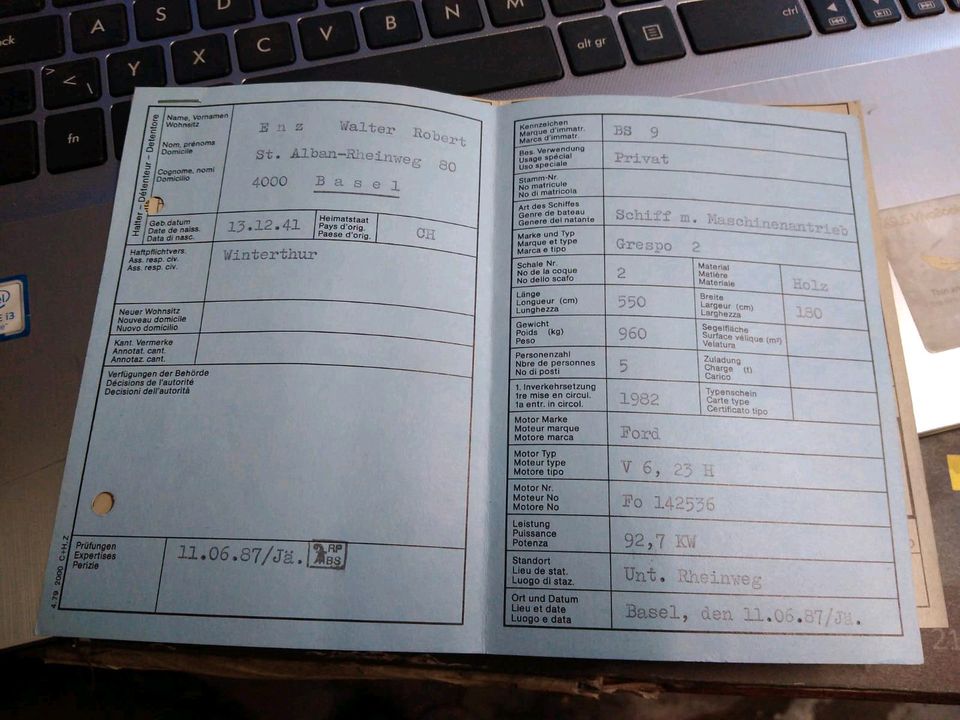 A
S
D
F
G
H
J
ck
>
<
Y
X
C
V
B
N
M
alt gr
ctrl
fn
Halter – Détenteur – Detentore
Name, Vornamen
Wohnsitz
Nom, prénoms
Domicile
Cognome, nomi
Domicilio
Enz Walter Robert
St. Alban-Rheinweg 80
4000 Basel
Geb.datum
Date de naiss.
Data di nasc.
13.12.41
Heimatstaat
Pays d'orig.
Paese d'orig.
CH
Haftpflichtvers.
Ass. resp. civ.
Ass. resp. civ.
Winterthur
Neuer Wohnsitz
Nouveau domicile
Nuovo domicilio
Kant. Vermerke
Annotat. cant.
Annotaz. cant.
Verfügungen der Behörde
Décisions de l'autorité
Decisioni dell'autorità
Prüfungen
Expertises
Perizie
11.06.87/Jä.
RP
BS
4.79 2000 C+H.Z
Kennzeichen
Marque d'immatr.
Marca d'immatr.
BS 9
Bes. Verwendung
Usage spécial
Uso speciale
Privat
Stamm-Nr.
No matricule
No di matricola
Art des Schiffes
Genre de bateau
Genere del natante
Schiff m. Maschinenantrieb
Marke und Typ
Marque et type
Marca e tipo
Grespo 2
Schale Nr.
No de la coque
No dello scafo
2
Material
Matière
Materiale
Holz
Länge
Longueur (cm)
Lunghezza
550
Breite
Largeur (cm)
Larghezza
180
Gewicht
Poids (kg)
Peso
960
Segelfläche
Surface vélique (m²)
Velatura
Personenzahl
Nbre de personnes
No di posti
5
Zuladung
Charge (t)
Carico
1. Inverkehrsetzung
1re mise en circul.
1a entr. in circol.
1982
Typenschein
Carte type
Certificato tipo
Motor Marke
Moteur marque
Motore marca
Ford
Motor Typ
Moteur type
Motore tipo
V 6, 23 H
Motor Nr.
Moteur No
Motore No
Fo 142536
Leistung
Puissance
Potenza
92,7 KW
Standort
Lieu de stat.
Luogo di staz.
Unt. Rheinweg
Ort und Datum
Lieu et date
Luogo e data
Basel, den 11.06.87/Jä.